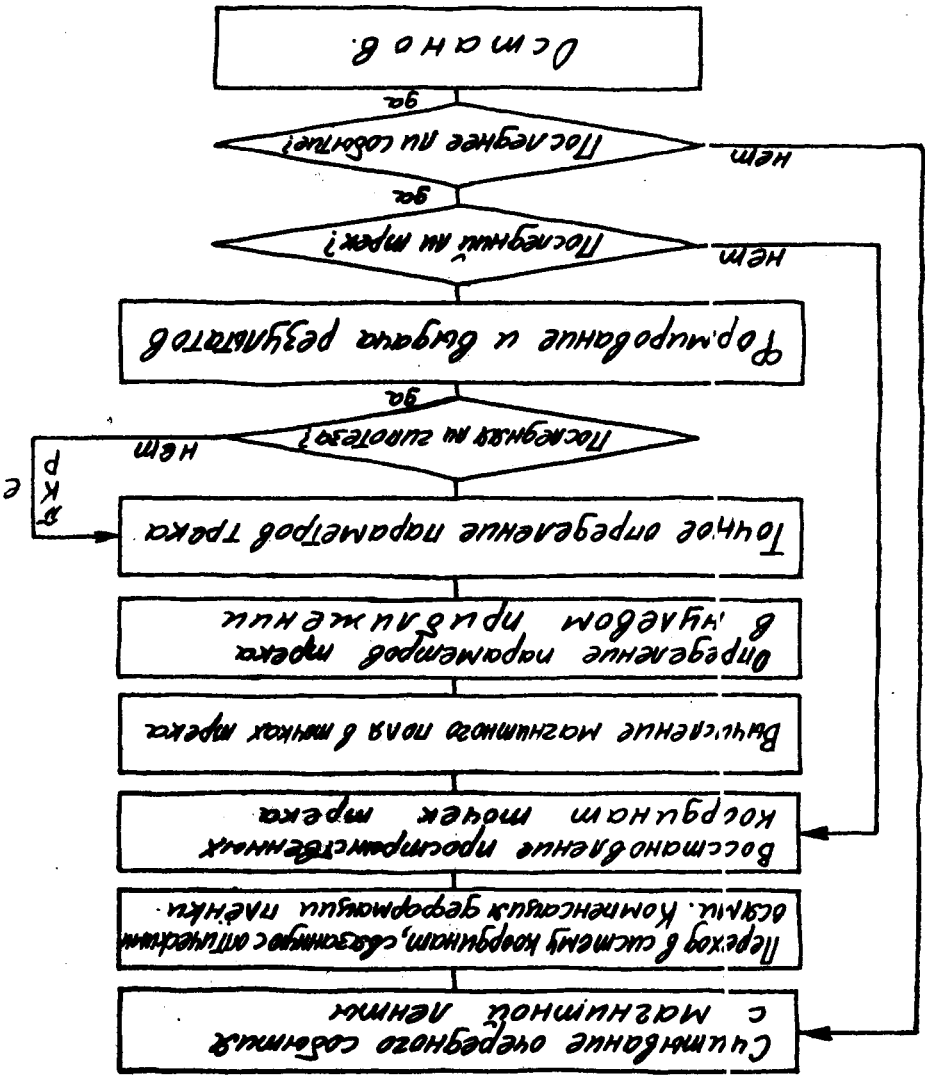 Считывание очередного события
с магнитной ленты
Переход в систему координат, связанную с оптическими
осями. Компенсация деформации плёнки
Восстановление пространственных
координат точек трека
Вычисление магнитного поля в точках трека
Определение параметров трека
в нулевом приближении
Точное определение параметров трека
π
К
Р
е
Последняя ли гипотеза?
нет
да
Формирование и выдача результатов
Последний ли трек?
нет
да
Последнее ли событие?
нет
да
Останов.